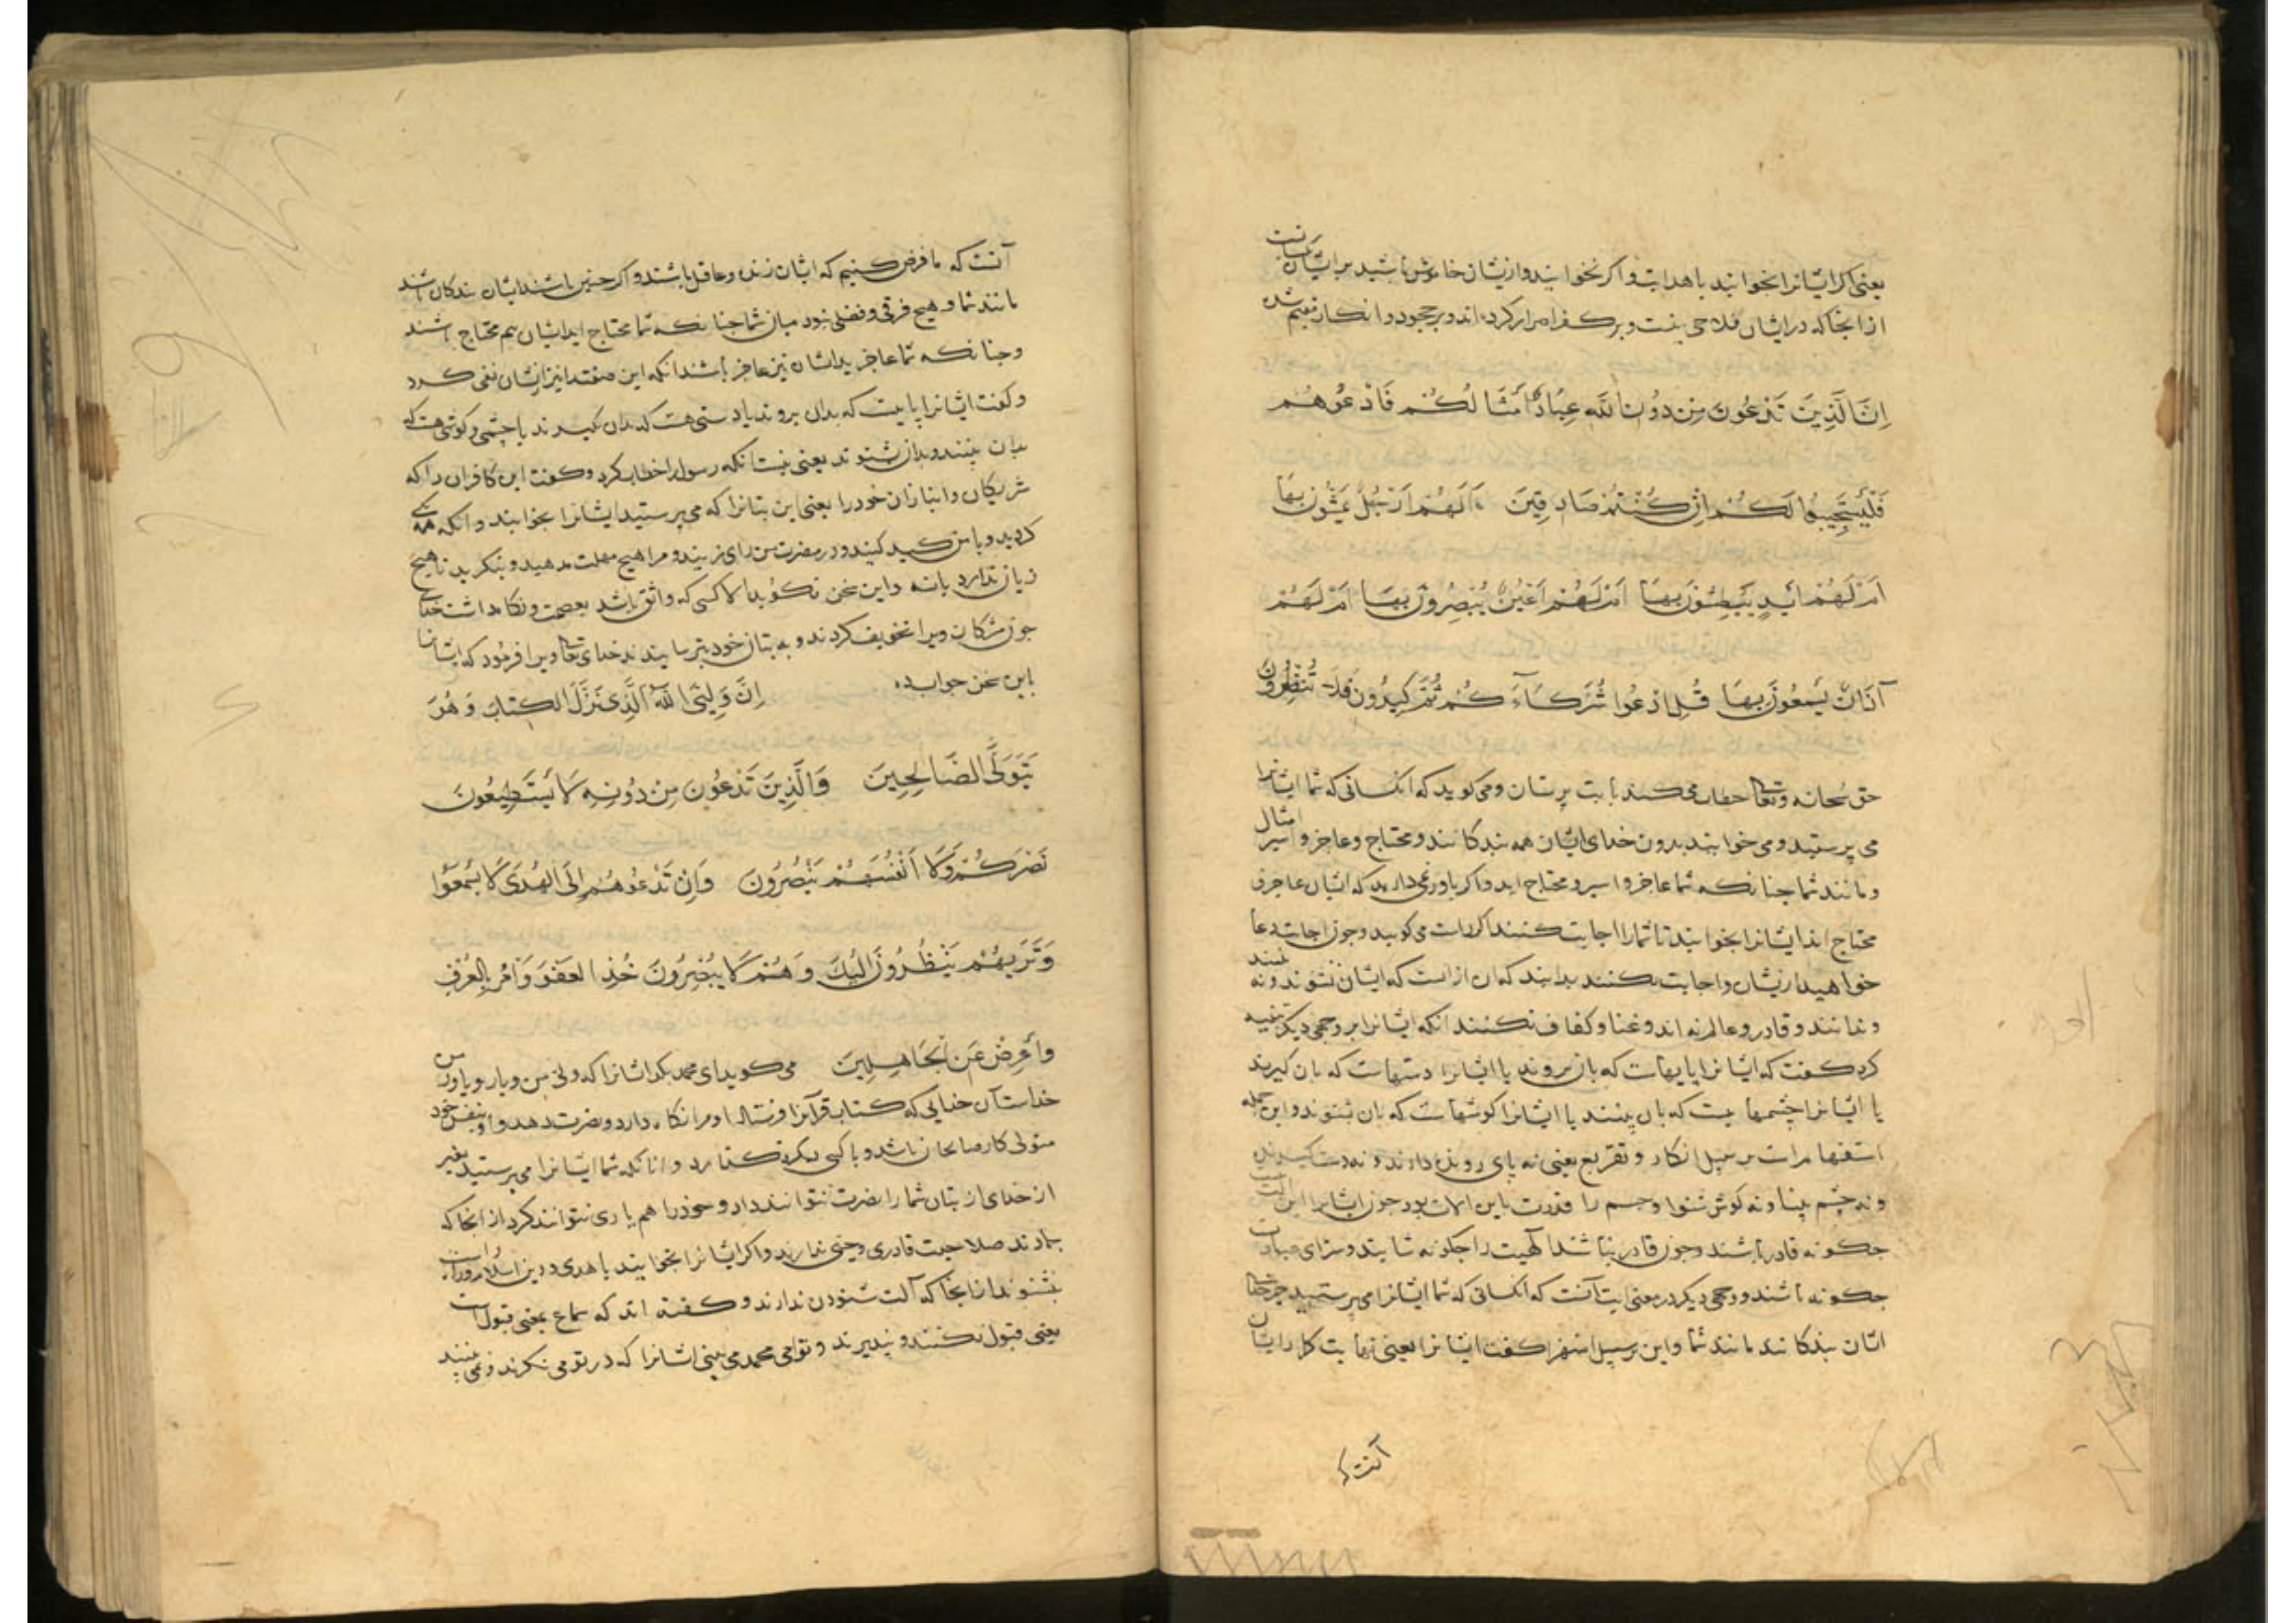 یعنی اکر ایشانرا بخوانید با هدایت و اکر نخوانید و از یشان خاموش باشید بر ایشان یکسانست
از انجا که در ایشان فلاحی نیست و بر کفر اصرار کرده اند و بر جحود و انکار مقیم شده
اِنَّ الَّذِینَ تَدْعُونَ مِنْ دُونِ اللَّهِ عِبَادٌ اَمْثَالُکُمْ فَادْعُوهُمْ
فَلْیَسْتَجِیبُوا لَکُمْ اِنْ کُنْتُمْ صَادِقِینَ اَلَهُمْ اَرْجُلٌ یَمْشُونَ بِهَا
اَمْ لَهُمْ اَیْدٍ یَبْطِشُونَ بِهَا اَمْ لَهُمْ اَعْیُنٌ یُبْصِرُونَ بِهَا اَمْ لَهُمْ
آذَانٌ یَسْمَعُونَ بِهَا قُلِ ادْعُوا شُرَکَآءَکُمْ ثُمَّ کِیدُونِ فَلَا تُنْظِرُونِ
حق سبحانه وتعالی خطاب می کند با بت پرستان و می کوید که انکسانی که شما ایشانرا
می پرستید و می خوانید بدون خدای ایشان همه بندکانند و محتاج و عاجز و اسیر امثال
و مانند شما جنانکه شما عاجز و اسیر و محتاج اید و اکر باور نمی دارید که ایشان عاجز و
محتاج اند ایشانرا بخوانید تا شما را اجابت کنند اکر راست می کویید و جون اجابت دعا
خواهید از یشان و اجابت نکنند بدانید که آن از انست که ایشان نشنوند و نه بینند
و ندانند و قادر و عالم نه اند و غنا و کفاف نکنند انکه ایشانرا بر وجهی دیکر تنبیه
کرد کفت که ایشانرا پایهاست که بان بروند یا ایشانرا دستهاست که بان کیرند
یا ایشانرا چشمها یست که بان بینند یا ایشانرا کوشهاست که بان شنوند و این جمله
استفهام است بر سبیل انکار و تقریع یعنی نه پای رونده دارند و نه دست کیرنده
و نه چشم بینا و نه کوش شنوا و جسم را قدرت باین الات بود جون ایشانرا این الت نیست
جکونه قادر باشند و جون قادر نباشند الهیت را جکونه شایند و سزای عبادت
جکونه باشند و وجهی دیکر در معنی ایت آنست که انکسانی که شما ایشانرا می پرستید جز خدا
ایشان بندکانند مانند شما و این بر سبیل استهزا کفت ایشانرا یعنی نهایت کار ایشان
آنست که
آنست که ما فرض کنیم که ایشان زنده و عاقل باشند و اکر جنین باشند ایشان بندکان باشند
مانند شما و هیج فرقی و فضلی نبود میان شما جنانکه شما محتاج اید ایشان هم محتاج باشند
و جنانکه شما عاجز ید ایشان نیز عاجز باشند انکه این صفت را نیز از یشان نفی کرد
و کفت ایشانرا پاییست که بدان بروند یا دستی هست که بدان کیرند یا چشمی و کوشی هست که
بدان بینند و بدان شنوند یعنی نیست انکه رسول را خطاب کرد و کفت این کافران را که
شریکان و انبازان خود را یعنی این بتانرا که می پرستید ایشانرا بخوانید و انکه همه یکی
کردید و با من کید کنید و در مضرت من رای زنید و مرا هیج مهلت مدهید و بنکرید تا هیج
زیان ندارد یا نه و این سخن نکوید الا کسی که واثق باشد بعصمت و نکاه داشت خدای
جون مشرکان ویرا تخویف کردند و به بتان خود بترسانیدند خدای تعالی ویرا فرمود که ایشانرا
باین سخن جواب ده اِنَّ وَلِیِّیَ اللَّهُ الَّذِی نَزَّلَ الْکِتَابَ وَ هُوَ
یَتَوَلَّی الصَّالِحِینَ وَالَّذِینَ تَدْعُونَ مِنْ دُونِهِ لَا یَسْتَطِیعُونَ
نَصْرَکُمْ وَلَا اَنْفُسَهُمْ یَنْصُرُونَ وَاِنْ تَدْعُوهُمْ اِلَی الْهُدَی لَا یَسْمَعُوا
وَتَرَیهُمْ یَنْظُرُونَ اِلَیْکَ وَ هُمْ لَا یُبْصِرُونَ خُذِ الْعَفْوَ وَاْمُرْ بِالْعُرْفِ
وَاَعْرِضْ عَنِ الْجَاهِلِینَ می کوید ای محمد بکو ایشانرا که ولی من و یار و یاور من
خداست آن خدایی که کتاب قرآنرا فرستاد او مرا نکاه دارد و نصرت دهد و او بنفس خود
متولی کار صالحان باشد و با کسی دیکر نکذارد و انانکه شما ایشانرا می پرستید بغیر
از خدای از بتان شما را نصرت نتوانند داد و خود را هم یاری نتوانند کرد از انجا که
جمادند صلاحیت قادری و حیی ندارند و اکر ایشانرا بخوانید با هدی و دین اسلام و راه راست
نشنوند از انجا که آلت شنودن ندارند و کفته اند که سماع بمعنی قبول است
یعنی قبول نکنند و نپذیرند و تو ای محمد می بینی ایشانرا که در تو می نکرند و نمی بینند